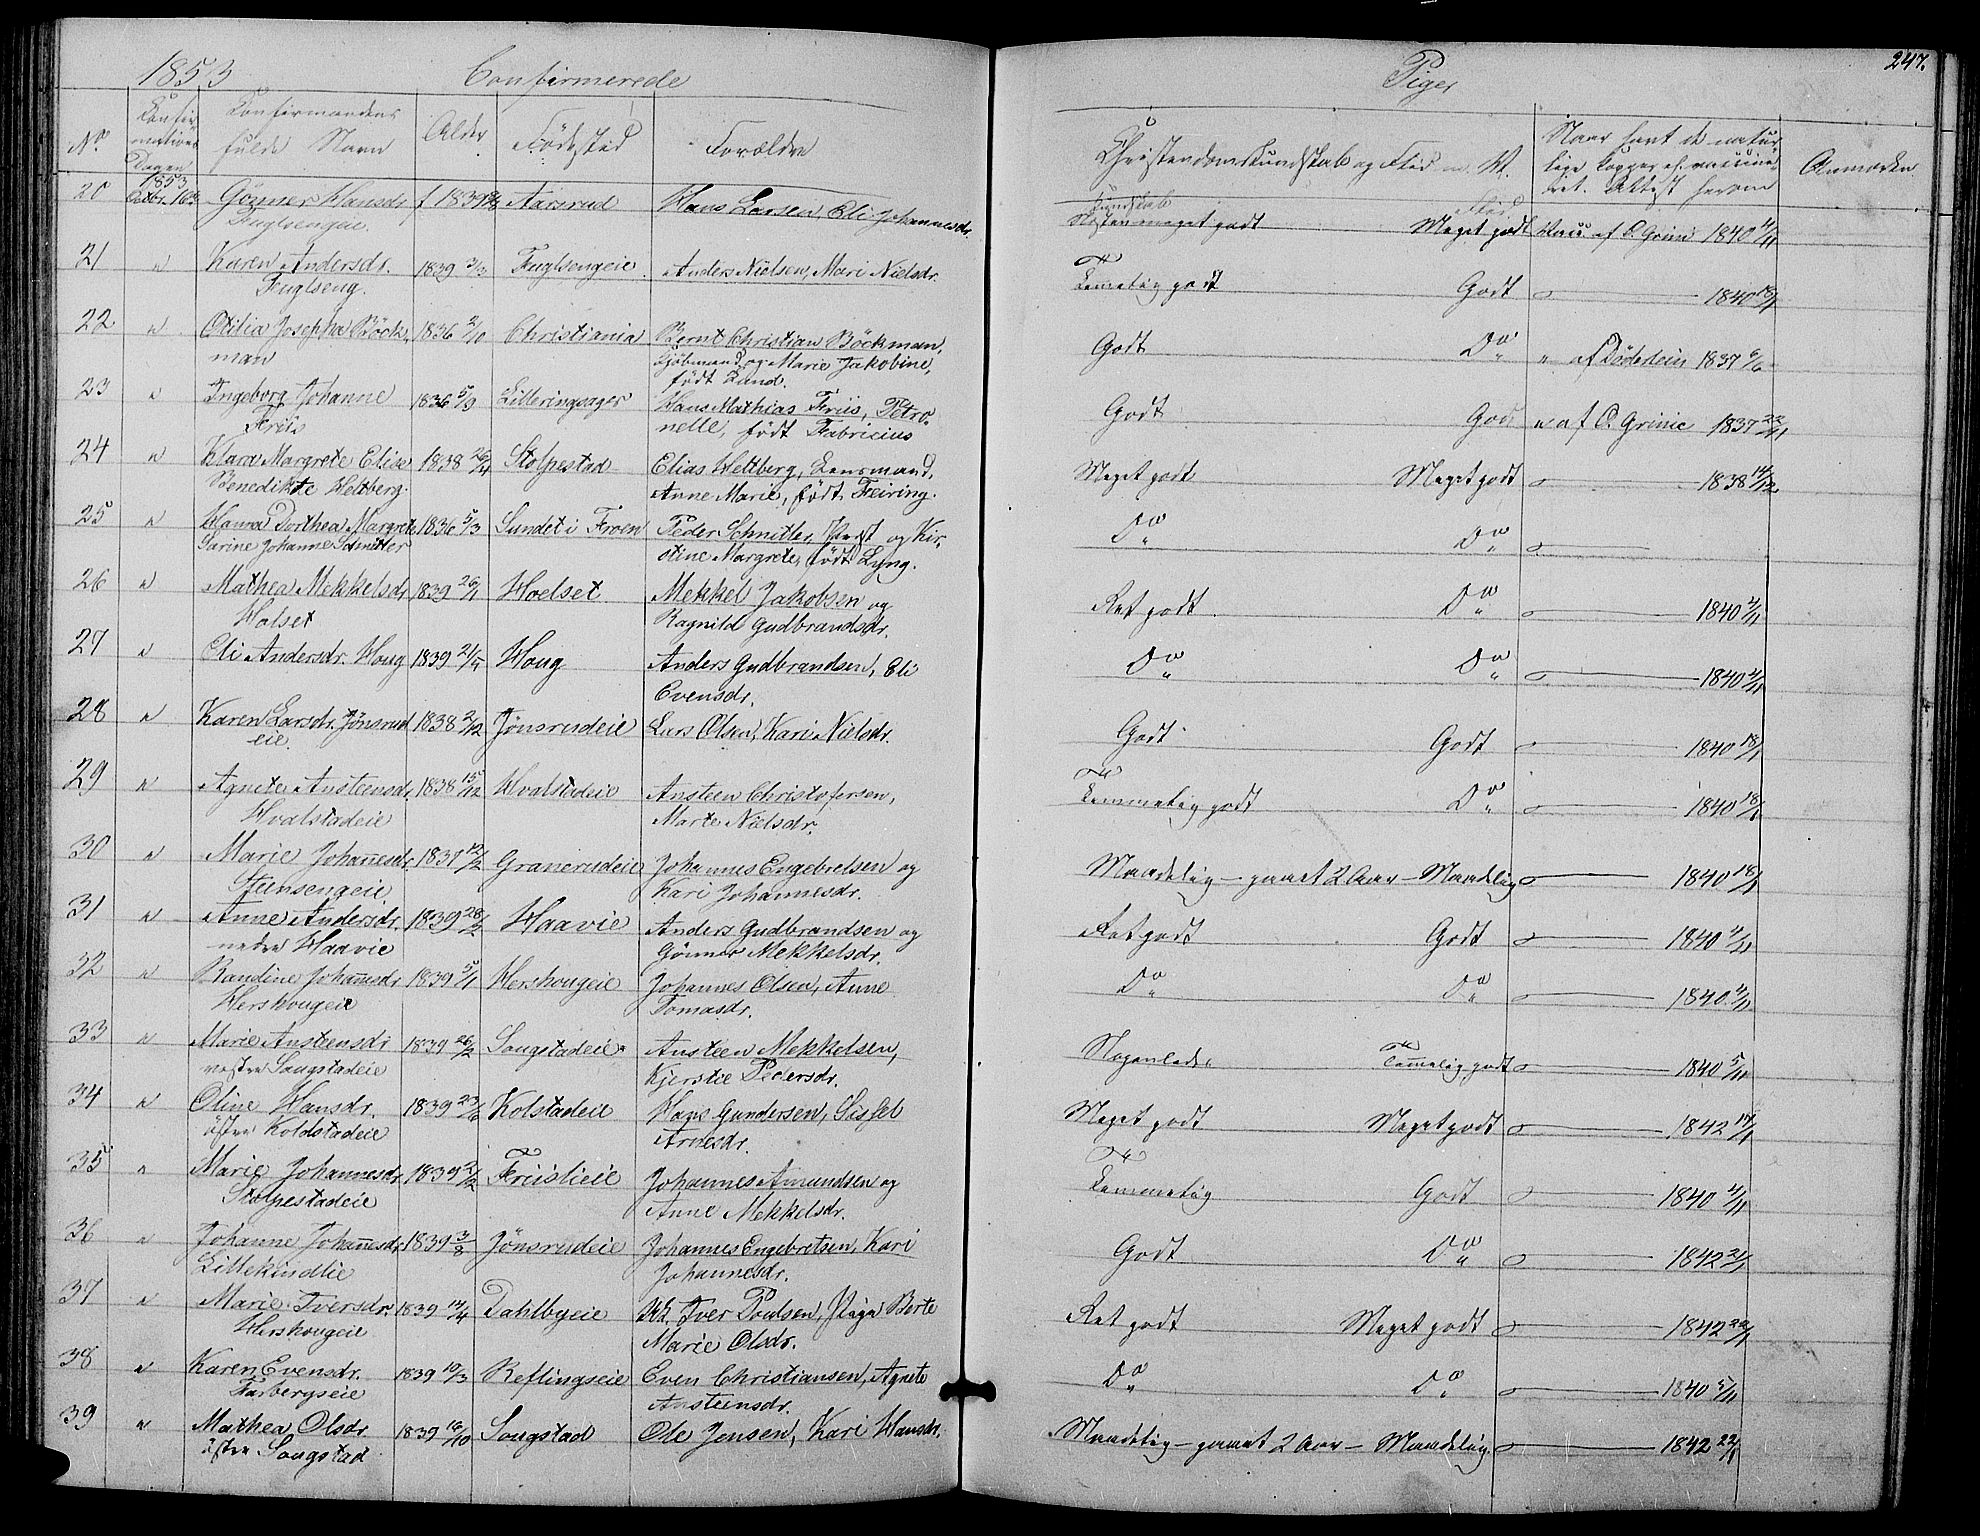 1853 Confirmerede Piger 247.
No Confirmations Dagen Confirmandens fulde Navn Alder Fødested Forældre Christendomskundskab og Flid Naar havt de naturlige Kopper el. vaccineret. Attest herom Anmærkn.
20 1853 Octbr. 16de Gönner Hansdr. Fuglsengeie f 1839 Aarsrud Hans Larsen, Eli Johannesdr. Kundskab Næsten meget godt Flid Meget godt Vacc. af O. Grini 1840 4/11
21 " Karen Andersdr. Fuglseng. 1839 3/3 Fuglsengeie Anders Nielsen, Mari Nielsdr. Temmelig godt Godt 1840 18/1
22 " Otilia Josepha Böckman 1836 2/10 Christiania Bernt Christian Böckman, Kjöbmand og Marie Jakobine, født Lund. Godt Do " af Döderlein 1837 6/6
23 " Ingeborg Johanne Friis 1836 5/9 Lilleringsager Hans Mathias Friis, Petronelle, født Fabricius Godt Godt " af O. Grinie 1837 23/11
24 " Klara Margrete Elise Benedikte Heltberg. 1838 26/4 Stolpestad Elias Heltberg, Lensmand, Anne Marie, født Feiring. Meget godt Meget godt 1838 14/12
25 " Hanna Dorthea Margrete Sarine Johanne Schnitler 1836 5/3 Sundet i Froen Peder Schnitler, Præst og Kirstine Margrete, født Lyng. Do Do
26 " Mathea Mekkelsdr. Holset 1839 26/1 Hoelset Mekkel Jakobsen og Ragnild Gudbrandsdr. Ret godt Do 1840 4/11
27 " Eli Andersdr. Houg 1839 21/5 Houg Anders Gudbrandsen, Eli Evensdr. Do Do 1840 4/11
28 " Karen Larsdr. Jönsrudeie. 1838 2/12 Jönsrudeie Lars Olsen, Kari Nielsdr. Godt Godt 1840 18/1
29 " Agnete Ansteensdr. Hvalstadeie 1838 15/12 Hvalstadeie Ansteen Christofersen, Marte Nielsdr. Temmelig godt Do 1840 18/1
30 " Marie Johannesdr. Steensengeie 1837 12/2 Granerudeie Johannes Engebretsen og Kari Johannesdr. Maadelig - gaaet 2 Aar - Maadelig 1840 18/1
31 " Anne Andersdr. nedre Haavie 1839 28/2 Haavie Anders Gudbrandsen og Gönner Mekkelsdr. Ret godt Godt 1840 4/11
32 " Randine Johannesdr. Hershougeie 1839 5/1 Hershougeie Johannes Olsen, Anne Tomasdr. Do Do 1840 4/11
33 " Marie Ansteensdr vestre Sougstadeie 1839 26/2 Sougstadeie Ansteen Mekkelsen, Kjerstie Pedersdr. Nogenledes Temmelig godt 1840 5/11
34 " Oline Hansdr. østre Koldstadeie 1839 Kolstadeie Hans Gundersen, Sissel Arnesdr. Meget godt Meget godt 1842
35 " Marie Johannesdr. Stolpestadeie 1839 2/2 Friislieie Johannes Amundsen og Anne Mekkelsdr. Temmelig Godt 1840 4/11
36 " Johanne Johannesdr. Lillekindlie 1839 3/3 Jönsrudeie Johannes Engebretsen, Kari Johannesdr. Godt Do 1842
37 " Marie Iversdr. Hershougeie 1839 14/4 Dahlbyeie Iver Poulsen, Pige Berte Marie Olsdr. Ret godt Meget godt 1842
38 " Karen Evensdr. Farbergseie 1839 10/3 Reflingseie Even Christiansen, Agnete Ansteensdr. Do Do 1840 5/11
39 " Mathea Olsdr. østre Sougstad 1839 16/10 Sougstad Ole Jensen, Kari Hansdr. Maadelig - gaaet 2 Aar - Maadelig 1842 22/1